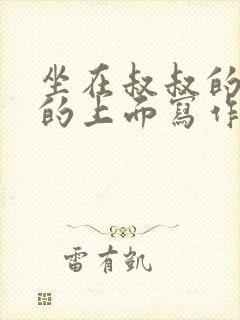 坐在叔叔的
的上而寫作
雷有凱